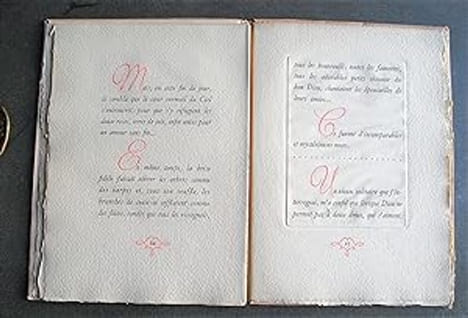 Mais, en cette fin du jour,
il semble que le cœur normal du Ciel
s'entr'ouvrit pour que s'y
deux roses, ivres de joie, enfin unies pour
un amour sans fin...
En même temps, la brise
faible faisait vibrer les arbres comme
des harpes et, sous son souffle, les
branches de
des flûtes, tandis que tous les rossignols,
tous les bouvreuils, toutes les fauvettes,
tous les adorables petits oiseaux du
bon Dieu, chantaient les épousailles de
leurs âmes...
Ce furent d'incomparables
et mystérieuses noces.
Un vieux solitaire que j'in-
terrogeai, m'a confié que lorsque Dieu
permet pas à deux âmes, qui s'aiment,